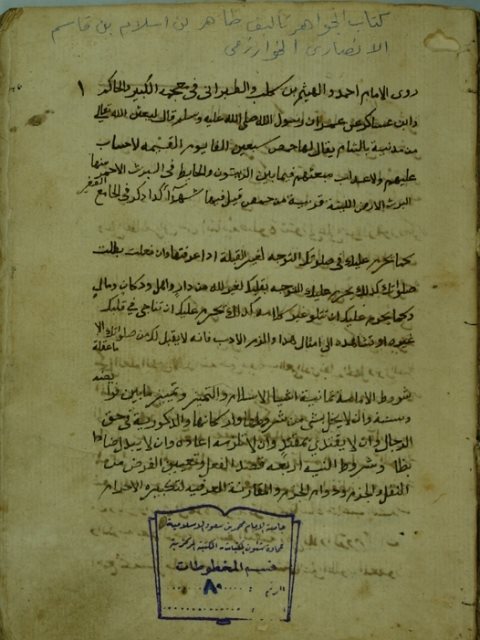 كتاب الجواهر تأليف طاهر بن اسلام بن قاسم
الانصاري الخوارزمي
روى الامام احمد والهيثم بن كليب والطبراني في معجمه الكبير والحاكم ١
وابن عساكر عن عمر ان رسول الله صلى الله عليه وسلم قال ليبعثن الله تعالى
من مدينة بالشام يقال لها حمص سبعين الفا يوم القيمة لا حساب
عليهم ولا عذاب مبعثهم فيما بين الزيتون والحايط في البرث الاحمر منها
البرث الارض اللينة قريبة من حمص قتل فيها كذا ذكر في الجامع
كما يحرم عليك في صلوتك التوجه لغير القبلة اذا عرفتها وان فعلت بطلت
صلوتك كذلك يحرم عليك التوجه بقلبك لغير الله من دار واهل ودكان ومال
وكما يحرم عليك ان تتلو غير كلامه كذلك يحرم عليك ان تناجي في قلبك
غيره او تشاهده الى امثال هذا والزم الادب فانه لا يقبل لك من صلوتك الا
ما عقلته
شروط الامامة ثمانية الاسلام والتمييز وتمييز ما بين فرض
وسنة وان لا يخل بشئ من شروطها واركانها والذكورية في حق
الرجال وان لا يقتدي بمقتد وان لا تلزمه اعادة وان لا يبدل ضادا
بظاء وشروط النية اربعة قصد الفعل وتعيين الفرض من
النفل والجزم ودوام الجزم والمقارنة العرفية لتكبيرة الاحرام
جامعة الامام محمد بن سعود الاسلامية
عمادة شئون المكتبات - المكتبة المركزية
قسم المخطوطات
الرقم : ٨٠